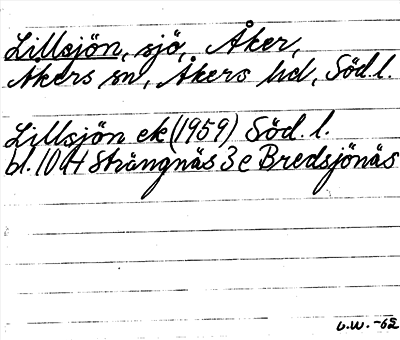 Lillsjön, sjö, Åker,
Åkers sn, Åkers hd, Söd.l.
Lillsjön ek (1959) Söd. l.
bl. 10 H Strängnäs 3 e Bredsjönäs
U.W. -62